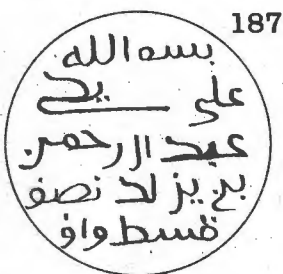 187
بسم الله
على يدي
عبد الرحمن
بن يزيد نصف
قسط واف